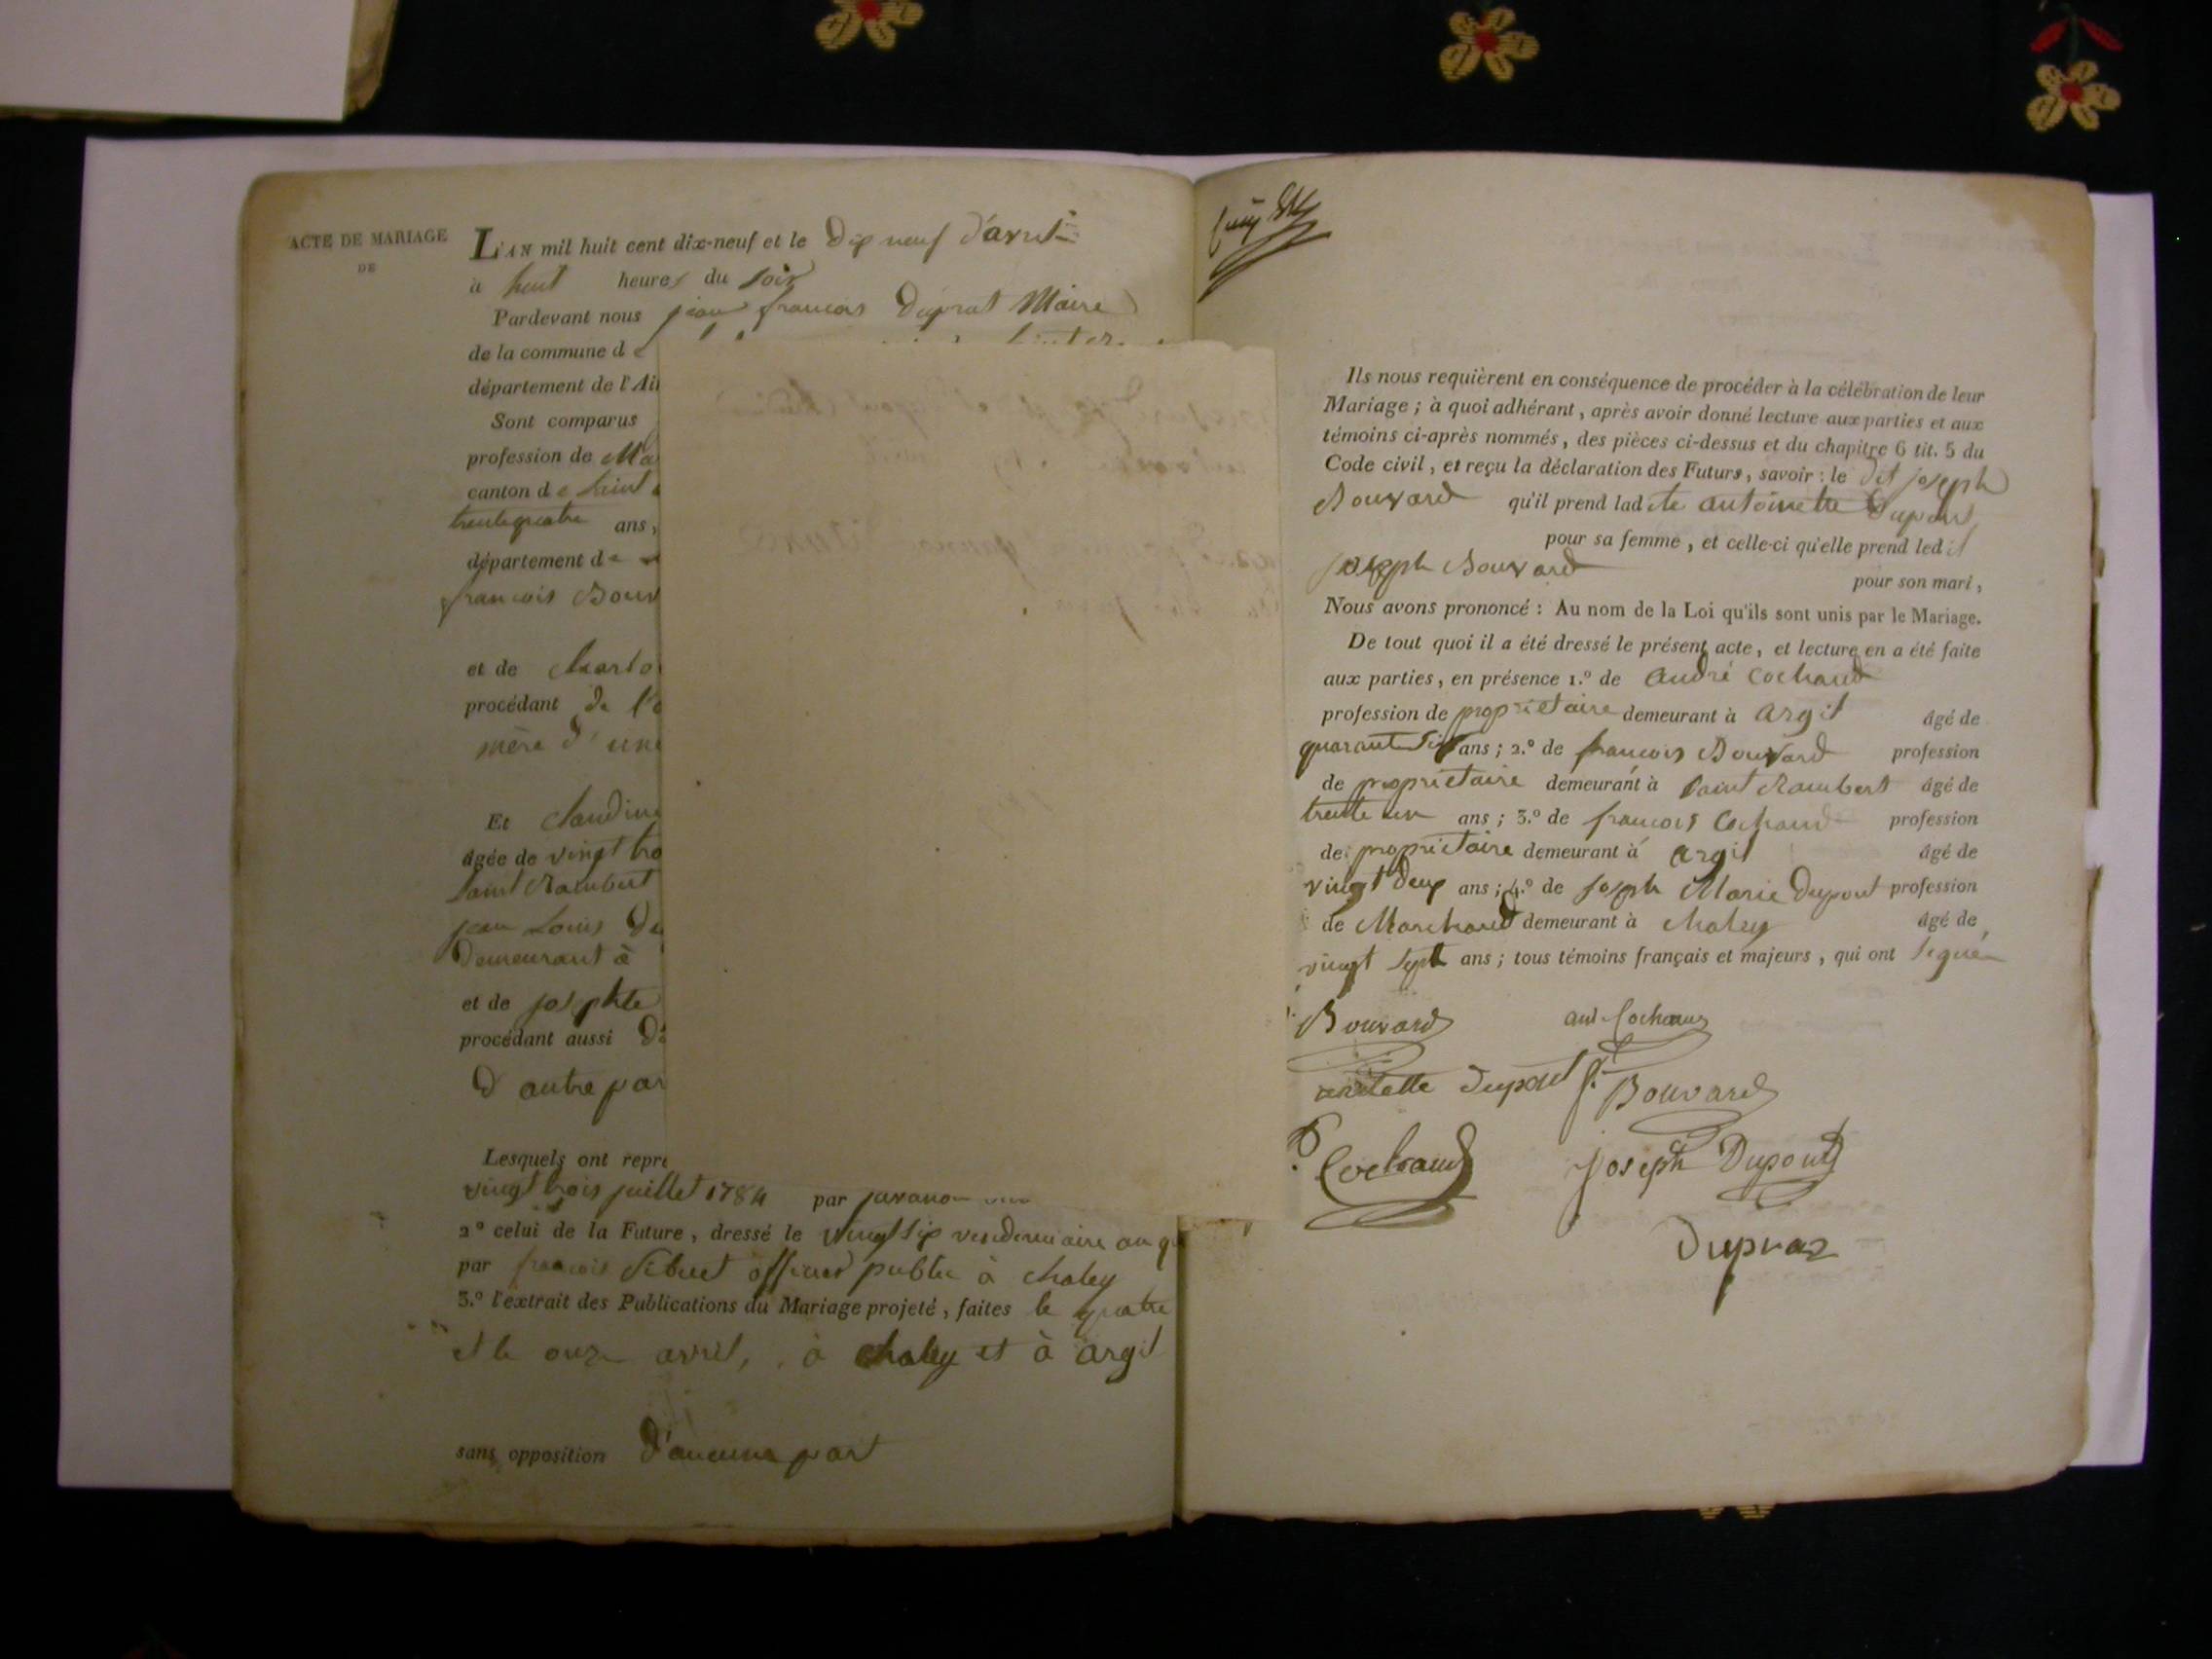 ACTE DE MARIAGE
DE
L'AN mil huit cent dix-neuf et le dix neuf d'avril
à huit heures du soir
Pardevant nous jean francois Dupraz Maire
de la commune de
département de l'Ain
Sont comparus
profession de Ma
canton de Saint
trentequatre ans,
département de
francois Bouv
et de Charlo
procédant de l'
mère d'une
Et Claudine
âgée de vingt tro
Saint Rambert
jean Louis Du
Demeurant à
et de josephte
procédant aussi De
D'autre par
Lesquels ont repré
vingt trois juillet 1784 par
2° celui de la Future, dressé le vingt six vendemiaire an
par francois Sibuet officier public à chaley
3.° l'extrait des Publications du Mariage projeté, faites le quatre
et le onze avril, à chaley et à argit
sans opposition D'aucune part
Ils nous requièrent en conséquence de procéder à la célébration de leur
Mariage ; à quoi adhérant, après avoir donné lecture aux parties et aux
témoins ci-après nommés, des pièces ci-dessus et du chapitre 6 tit. 5 du
Code civil, et reçu la déclaration des Futurs, savoir : le dit joseph
Bouvard qu'il prend ladite antoinette Dupont
pour sa femme, et celle-ci qu'elle prend ledit
joseph Bouvard
pour son mari,
Nous avons prononcé : Au nom de la Loi qu'ils sont unis par le Mariage.
De tout quoi il a été dressé le présent acte, et lecture en a été faite
aux parties, en présence 1.° de andré Cochaud
profession de propriétaire demeurant à argit âgé de
quarante six ans ; 2.° de francois Bouvard profession
de proprietaire demeurant à Saint Rambert âgé de
trente un ans ; 3.° de francois Cochaud profession
de proprietaire demeurant à argit âgé de
vingt deux ans ; 4.° de joseph Marie Dupont profession
de Marchand demeurant à chaley âgé de
vingt sept ans ; tous témoins français et majeurs, qui ont signé
Bouvard and Cochaud
Dupont f. Bouvard
Cochaud Joseph Dupont
Dupraz